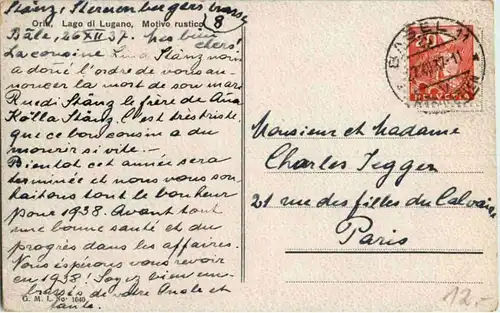 Stänz, Sternenbergerstrasse 8
Oria, Lago di Lugano, Motivo rustico
Bâle, 26 XII 37. Mes bien
chers!
La cousine Lina Stänz nous
a donné l'ordre de vous an-
noncer la mort de son mari
Ruedi Stänz le frère de Ana
Kölla Stänz. C'est très triste,
que ce bon cousin a du
mourir si vite.-
Bientôt cet année sera
terminée et nous vous sou-
haitons tout le bonheur
pour 1938. Avant tout
une bonne santé et du
progrès dans les affaires.
Nous éspérons vous revoir
en 1938! Soyez bien em-
brassés de votre Oncle et
tante.
G. M. L. No. 1040
BASEL 11
20
HELVETIA
Monsieur et Madame
Charles Jegger
21 rue des filles du Calvaire
Paris
12.-